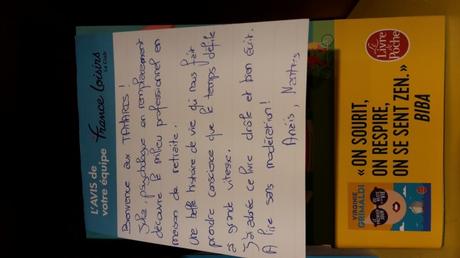 L'AVIS de
votre équipe
France Loisirs
Le Club
Bienvenue aux TAMARIS !
Julia, psychologue en remplacement
découvre le milieu professionnel en
maison de retraite.
Une belle histoire de vie qui nous fait
prendre conscience que le temps défile
à grande vitesse.
J'ai adoré ce livre drôle et bien écrit.
A lire sans modération !
Anaïs, Nantes
Le Livre
de Poche
« ON SOURIT,
ON RESPIRE,
ON SE SENT ZEN. »
BIBA
VIRGINIE
GRIMALDI